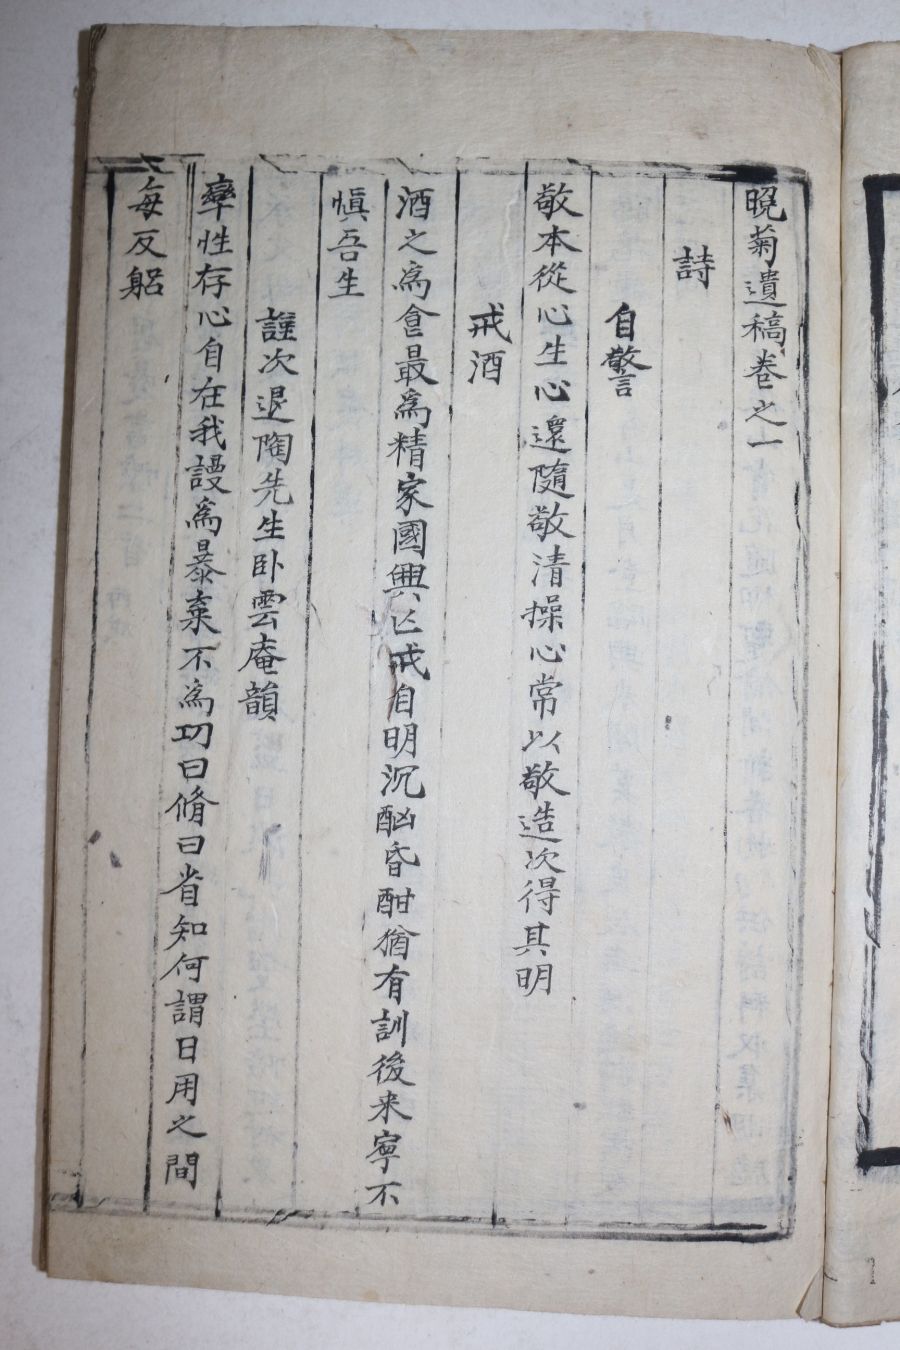 晚菊遺稿卷之一
詩
自警
敬本從心生心還隨敬清操心常以敬造次得其明
戒酒
酒之爲食最爲精家國興亡戒自明沉酗昏酣猶有訓後来寧不
愼吾生
謹次退陶先生卧雲庵韻
率性存心自在我謾爲暴棄不爲功曰脩曰省知何謂日用之間
每反躬